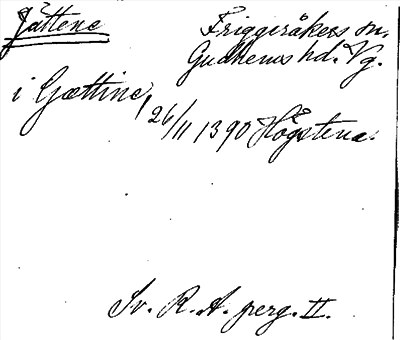 Jättene Friggeråkers sn.
Gudhems hd. Vg.
i Gættine, 26/11 1390 Högstena.
Sv. R. A. perg. II.